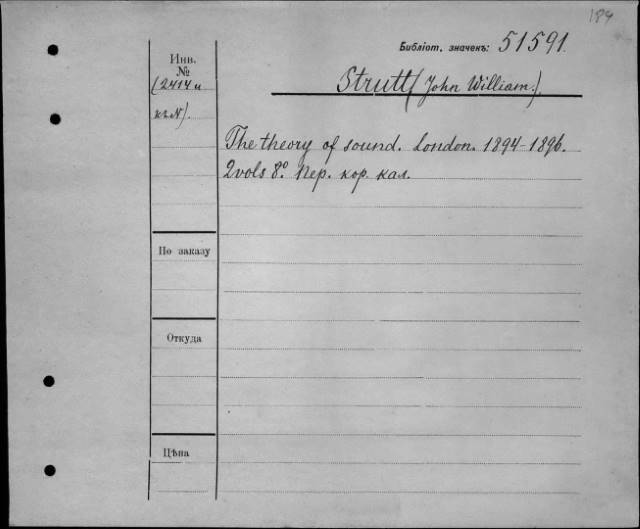 184
Библіот. значекъ: 51591.
Инв.
№
(2414 и
къ N).
Strutt (John William.)
The theory of sound. London. 1894-1896.
2 vols 8º. Пер. кор. кал.
По заказу
Откуда
Цѣна